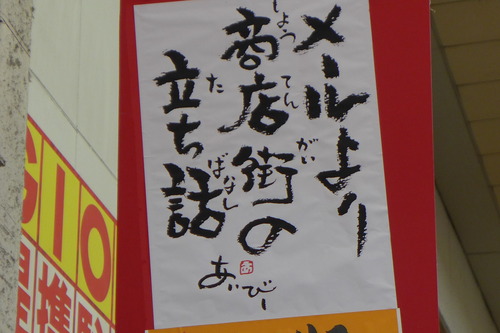 メールより
商店街の
しょうてんがい
立ち話
たばなし
あいびー
GIO